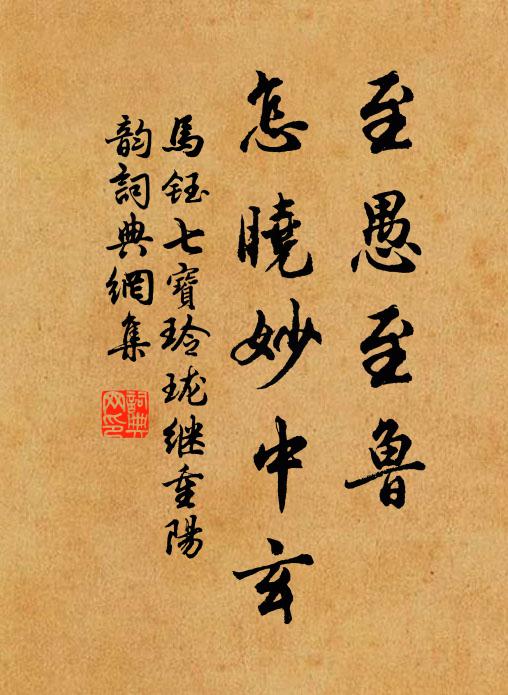 至愚至魯
怎曉妙中玄
馬鈺七寶玲瓏继重陽
韵詞典網集
詞典
网印